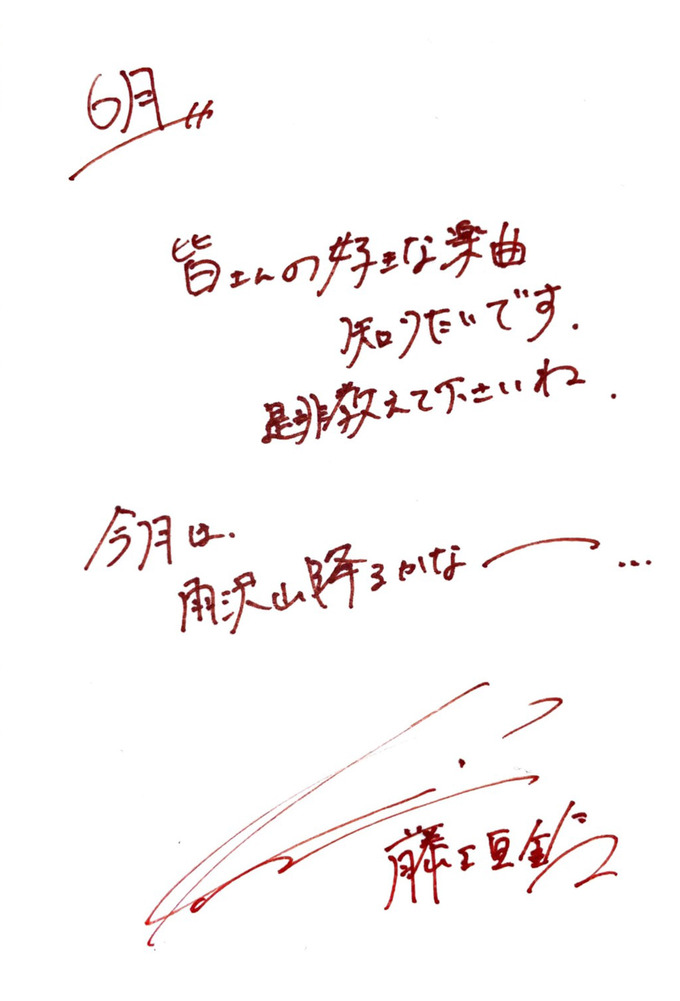 6月
皆さんの好きな楽曲
知りたいです.
是非教えて下さいね.
今月は.
雨沢山降るかなー…
藤